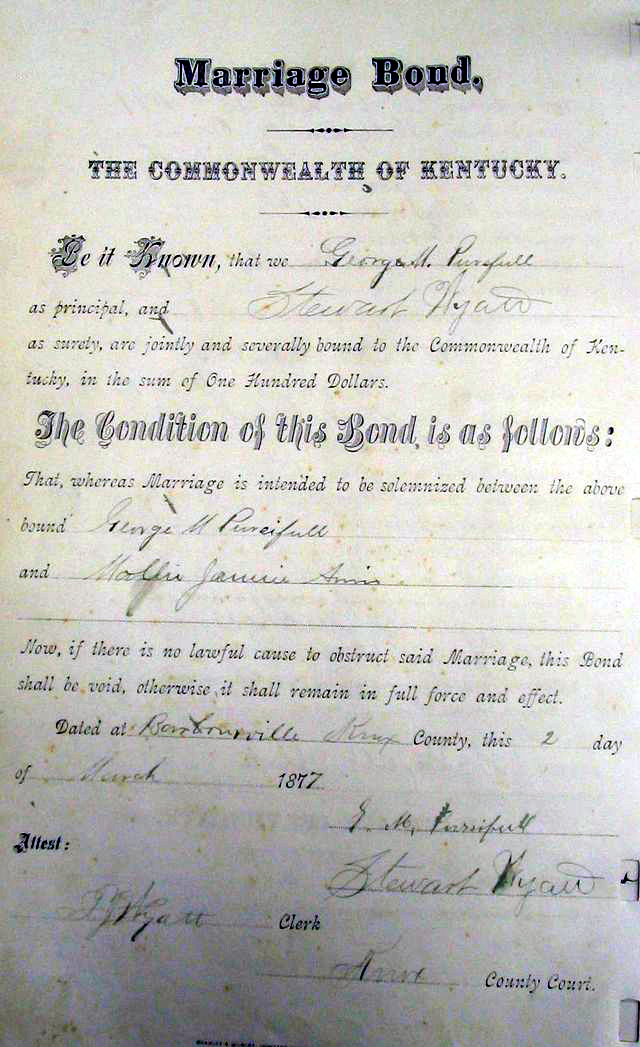 Marriage Bond.
THE COMMONWEALTH OF KENTUCKY.
Be it Known, that we George M. Purcifull
as principal, and Stewart Wyatt
as surety, are jointly and severally bound to the Commonwealth of Ken-
tucky, in the sum of One Hundred Dollars.
The Condition of this Bond, is as follows:
That, whereas Marriage is intended to be solemnized between the above
bound George M Purcifull
and Mollie Jannie
Now, if there is no lawful cause to obstruct said Marriage, this Bond
shall be void, otherwise it shall remain in full force and effect.
Dated at Barbourville Knox County, this 2 day
of March 1877
G. M. Purcifull
Attest:
Stewart Wyatt
Wyatt Clerk
Knox County Court.